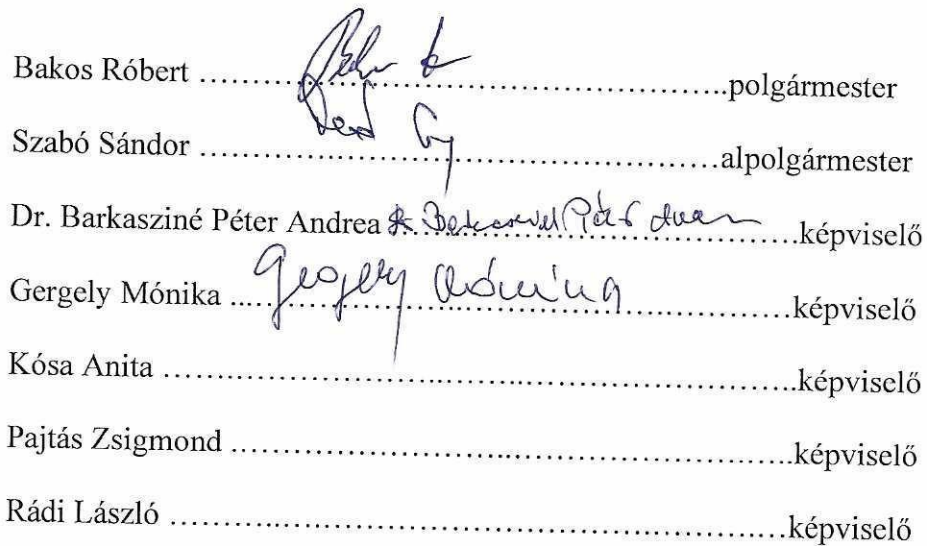 Bakos Róbert ........................................polgármester
Szabó Sándor ........................................alpolgármester
Dr. Barkasziné Péter Andrea ........................................képviselő
Gergely Mónika ... Gergely Mónika ...képviselő
Kósa Anita ........................................képviselő
Pajtás Zsigmond ........................................képviselő
Rádi László ........................................képviselő